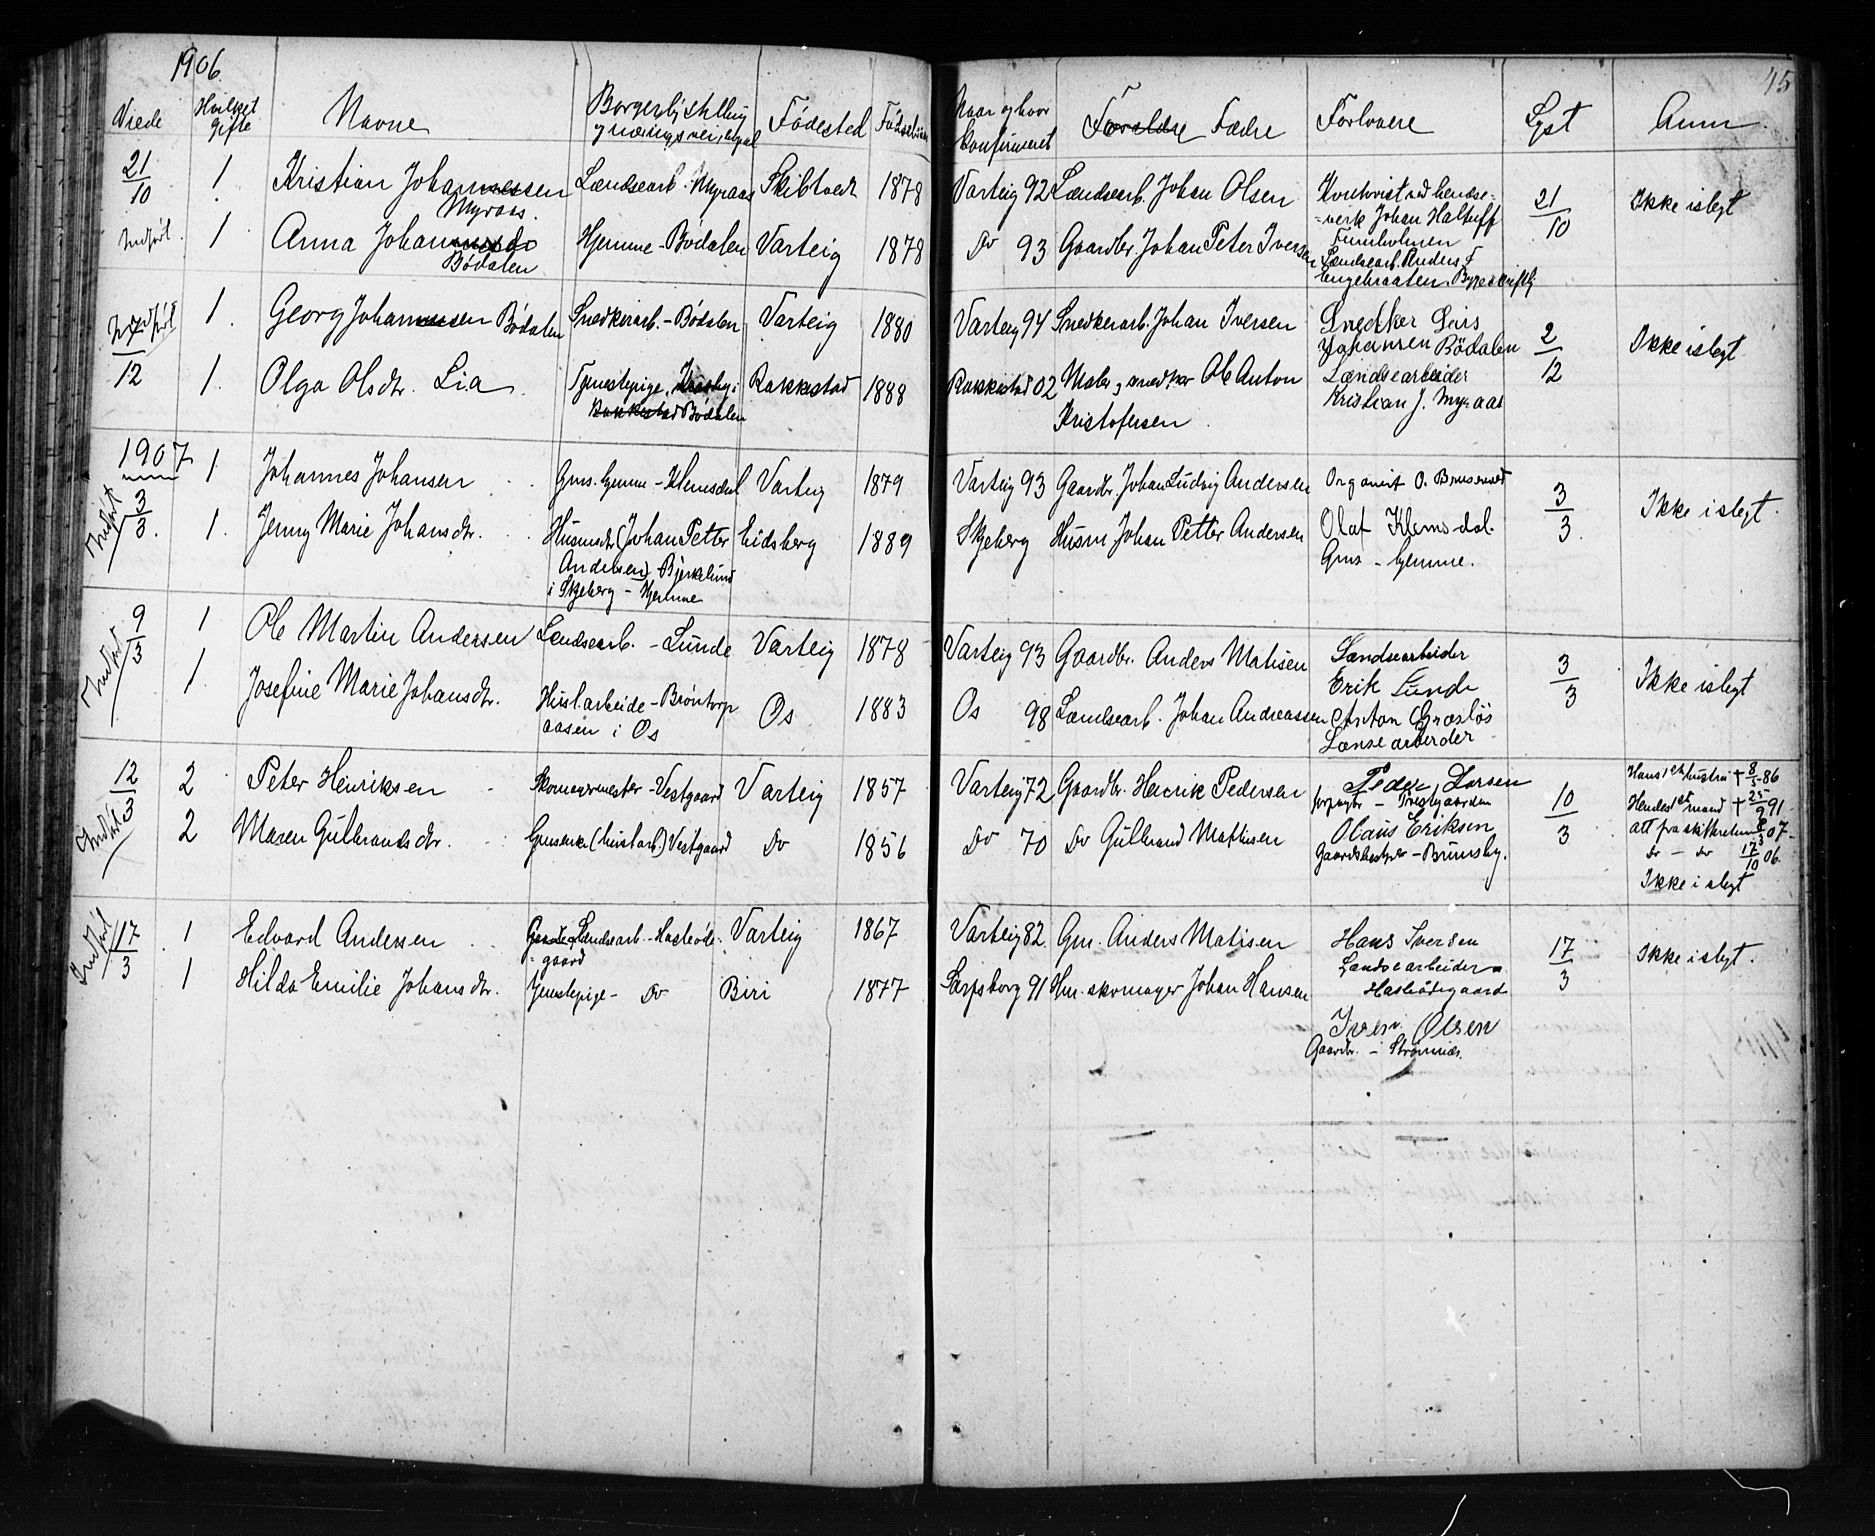 1906
45
Viede Hvilket Gifte Navne Borgerlig stilling og næringsvei, bopæl Fødested Naar og hvor konfirmeret Forældre Fædre Forlovere Lyst Anm
21/10 1. Kristian Johannessen Landsearb. Myraas Skibtvedt 1878 Varteig 92 Landsearb. Johan Olsen 21/10 Ikke i slegt
Myraas. Johan
Indført. 1 Anna Johannesdr Hjemme - Bødalen Varteig 1878 Do 93 Gaardbr. Johan Peter Iversen
Bødalen Landsearb. Anders F
Indført 7/12 1. Georg Johannessen Bødalen Snedkerarb. - Bødalen Varteig 1880 Varteig 94 Snedkerarb. Johan Iversen Snedker Lars 2/12 Ikke i slegt
Johansen Bødalen
1. Olga Olsdr. Lia Tjenestepige, Rakkestad Bødalen Rakkestad 1888 Rakkestad 02 Maler og snedker Ole Anton Landsearbeider
Kristofersen Kristian J. Myraas
1907
Indført 3/3. 1 Johannes Johansen Gms. hjemme - Klemsdal Varteig 1879 Varteig 93 Gaardbr. Johan Ludvig Andersen Organist O. 3/3 Ikke i slegt.
1. Jenny Marie Johansdr. Husmdr (Johan Petter Eidsberg 1889 Skjeberg Husm Johan Petter Andersen Olaf Klemsdal.
Andersen) Bjerkelund Gms - hjemme.
i Skjeberg - Hjemme
Indført 9/3 1 Ole Martin Andersen Landsearb. - Lunde Varteig 1878 Varteig 93 Gaardbr. Anders Matisen Landsearbeider 3/3 Ikke i slegt
Erik Lunde
1. Josefine Marie Johansdr. Husl. arbeide - Brøntorp Os 1883 Os 98 Landsearb. Johan Andreassen Anton Græsløs
aasen i Os Lansearbeider
Indført 12/3 2 Peter Henriksen - Skomagermester - Vestgaard Varteig 1857 Varteig 72 Gaardbr. Henrik Pedersen Peder Larsen 10/3 Hans 1ste hustru † 8/5-86
forpagter - Hendes 1ste mand † 25/9 91
2 Maren Gulbrandsdr. Gmsenke (huslarb) Vestgaard Do 1856 Do 70 Do Gulbrand Mathisen Olaus Eriksen Att fra skifteretten 8/3 07
Gaardsbestyrer - Brunsby. Do - Do 17/10 06
Ikke i slegt
Indført 17/3 1 Edvard Andersen Landsearb - Hasleøde- Varteig 1867 Varteig 82 Gm. Anders Matisen Hans Iversen 17/3 Ikke i slegt.
gaard Landsearbeider
1 Hilda Emilie Johansdr. Tjenestepige - Do Biri 1877 Sarpsborg 91 Hm. skomager Johan Hansen
Iver Olsen
Gaardbr. - Strømnes.